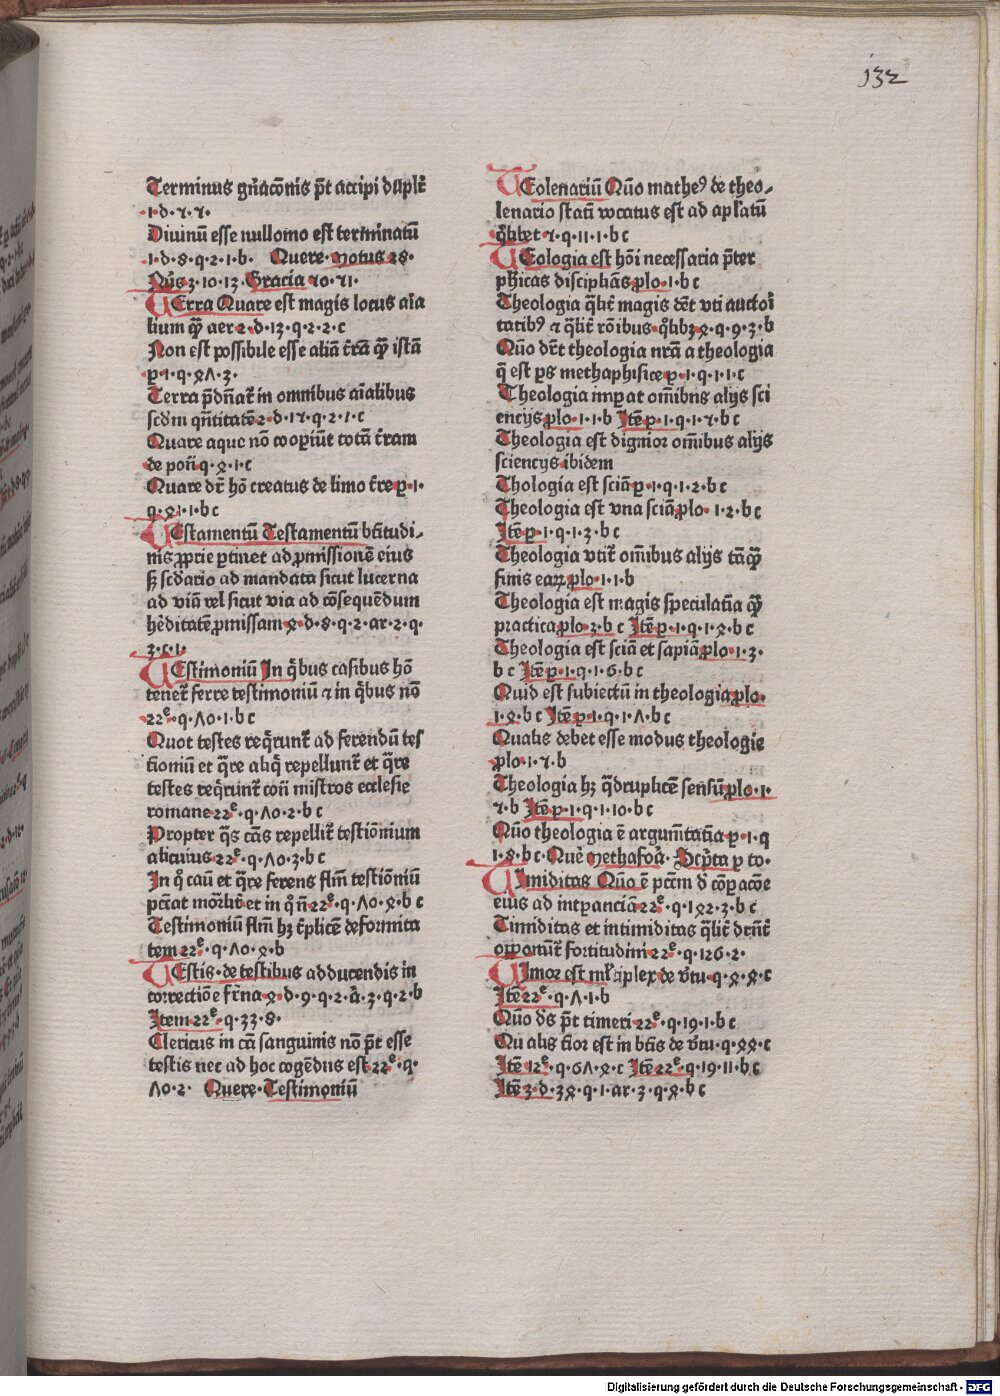 132
Terminus gn̄acōnis pt̄ accipi duplr̄
·1·d·7·7·
Diuinū esse nullomo est terminatū
1·d·8·q·2·1·b· Quere·motus 28·
Nūs 3·10·13·Gracia 70·71·
TErra Quare est magis locus aīa
lium qȝ aer 2·d·13·q·2·2·c
Non est possibile esse aliā tr̄ā qȝ istā
p·1·q·4Λ·3·
Terra pdn̄at̄ in omnibus aīalibus
scdm qn̄titatē 2·d·17·q·2·1·c
Quare aque nō cooꝑiūt totā tr̄ram
de poñ q·4·1·c
Quare dr̄ hō creatus de limo tr̄re p·1·
q·41·1·b c
TEstamentū Testamentū btītudi⸗
nis ꝓprie ꝑtinet ad ꝓmissionē eius
sȝ scdario ad mandata sicut lucerna
ad viū vel sicut via ad cōsequēdum
hēditatē ꝓmissam 4·d·8·q·2·ar·2·q·
3·c·1·
TEstimoniū In qi̇bus casibus hō
tenet̄ ferre testimoniū ⁊ in qi̇bus nō
22e·q·Λ0·1·b c
Quot testes reqi̇runt̄ ad ferendū tes
tioniū et qr̄e aliqi repellunt̄ et qr̄e
testes reqi̇runt̄ coñ mistros ecclesie
romane 22e·q·Λ0·2·b c
Propter qs̄ cās repellit̄ testiōnium
alicuius 22e·q·Λ0·3·b c
In qo cāu et qr̄e ferens flm̄ testiōniū
pc̄cat mōrlit̄ et in qo ñ 22e·q·Λ0·4·b c
Testimoniū flm̄ hȝ tr̄plicē deformita
tem 22e·q·Λ0·4·b
TEstis·de testibus adducendis in
correctiōe fr̄na 4·d·9·q·2·a·3·q·2·b
Item 22e·q·33·8·
Clericus in cā sanguinis nō pt̄ esse
testis nec ad hoc cogēdus est 22e·q·
Λ0·2· Quere·Testimoniū
TEolenariū Quō mathe9 de theo⸗
lenario statū vocatus est ad aplatū
qo̊libet 7·q·11·1·b c
TEologia est hōi necessaria pter
phicas disciplinās plo·1·b c
Theologia qlit̄ magis dēt vti auctoi
tatib9 ⁊ qlit̄ rōibus qo̊libȝ 4·q·9·3·b
Quō dr̄t theologia nr̄a a theologia
q̄ est ps methaphisice p·1·q·1·1·c
Theologia imperat om̄ibus alijs sci
encijs plo·1·1·b Itē p·1·q·1·7·b c
Theologia est dignior om̄ibus alijs
sciencijs ibidem
Thologia est sciā p·1·q·1·2·b c
Theologia est vna sciā plo·1·2·b c
Itē p·1·q·1·3·b c
Theologia vtit̄ om̄ibus alijs tāqȝ
finis eaꝝ plo·1·1·b
Theologia est magis speculatīa qȝ
practica plo·3·b c Itē p·1·q·1·4·b c
Theologia est sciā et sapiā plo·1·3·
b c Itē p·1·q·1·6·b c
Quid est subiectū in theologia plo·
1·4·b c Itē p·1·q·1·Λ·b c
Qualis debet esse modus theologie
plo·1·7·b
Theologia hȝ qdruplicē sensū plo·1·
7·b Itē p·1·q·1·10·b c
Quō theologia ē argum̄tatīa p·1·q
1·8·b c·Querē methafoā·Scpta p to·
TImiditas Quō ē pc̄m
eius ad intpancīā 22e·q·142·3·b c
Timiditas et intimiditas qlit̄ drn̄t
opponunt̄ fortitudini 22e·q·126·2·
TImor est mlt̄iplex de vtu·q·4·4·c
Itē 22e·q·Λ·1·b
Quō ds̄ pt̄ timeri 22e·q·19·1·b c
Qualis tior est in btīs de vtu·q·44·c
Itē 12e·q·6Λ·4·c Itē 22e·q·19·11·b c
Itē 3·d·34·q·1·ar·3·q·4·b c
Digitalisierung gefördert durch die Deutsche Forschungsgemeinschaft - DFG